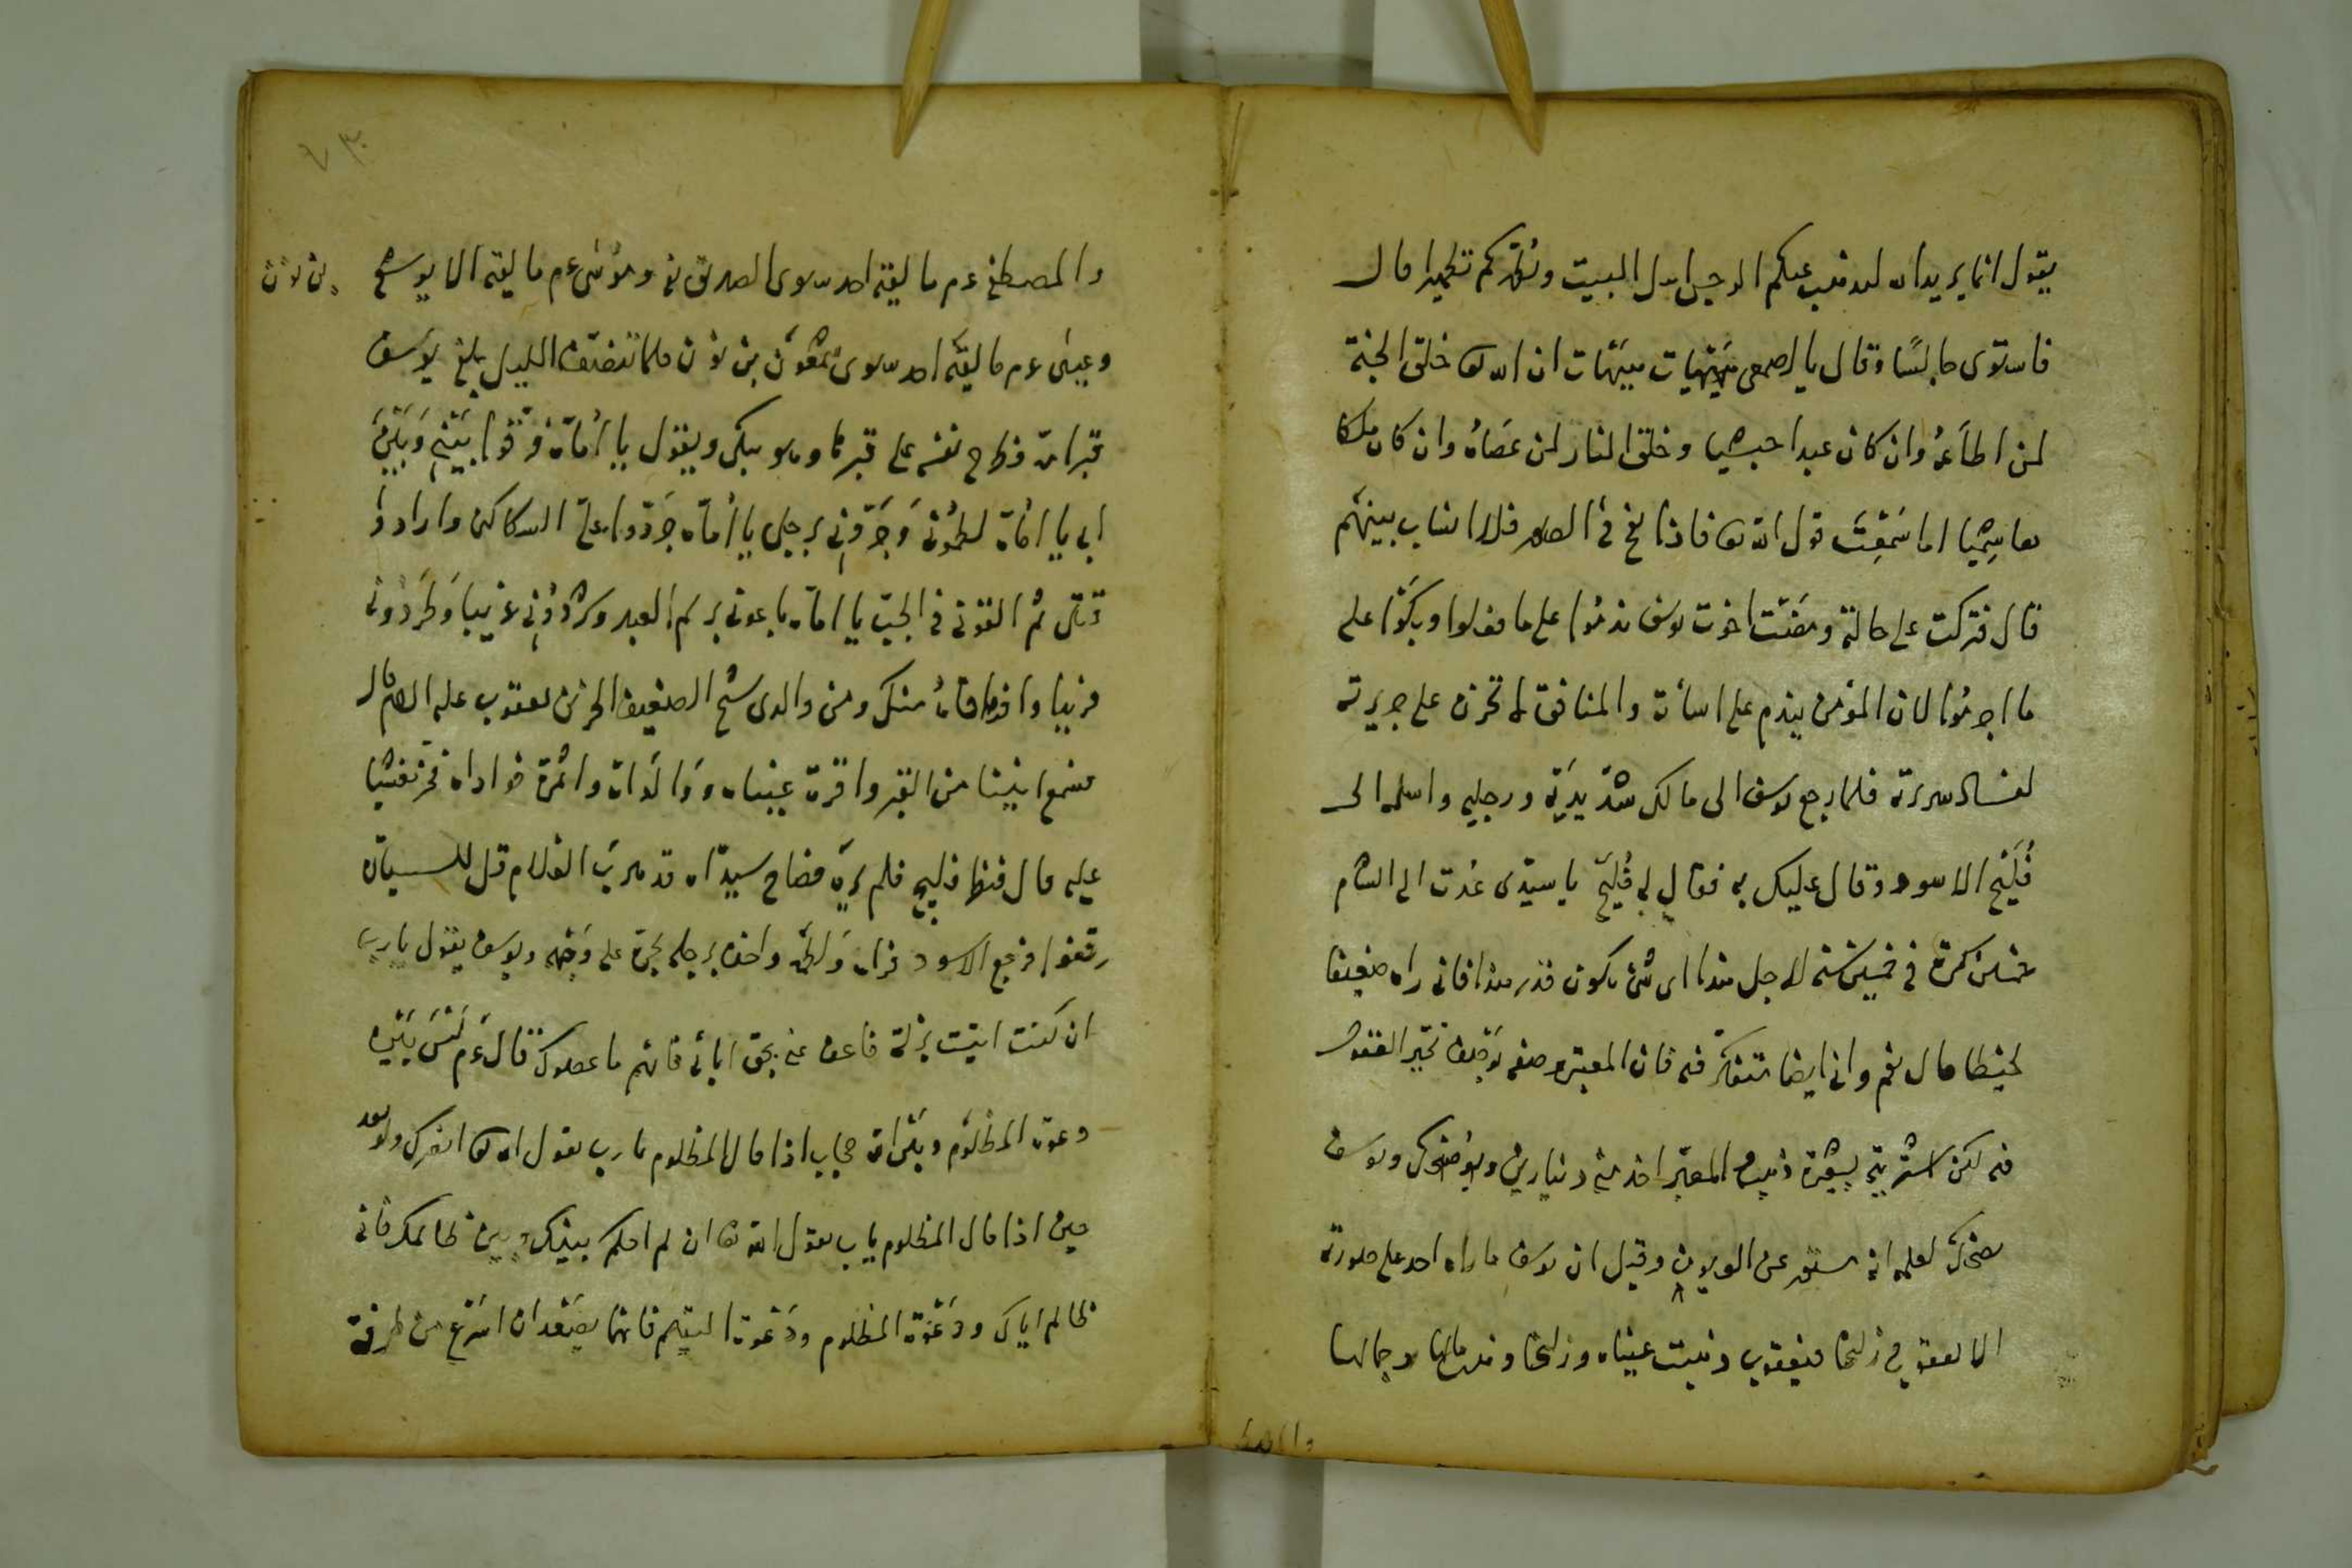 يقول انما يريد الله ليذهب عنكم الرجس اهل البيت ويطهركم تطهيرا قال
فاستوى جالسًا وقال يا اصمعى هيهات هيهات ان الله تعا خلق الجنة
لمن اطاعهُ وان كان عبدا حبشيا وخلق النار لمن عَصَاهُ وان كان ملكا
هاشِمْيا اما سَمِعْتَ قول الله تعا فاذا نفخ فى الصور فلا انساب بينهم
قال فتركت على حالته ومَضَت اخوت يوسف ندمُوا على ما فعلوا وبكَوْا على
ما اجرمُوا لان المؤمن يندم على اسأته والمنافق لا تحزن على جريرته
لفساد سريرته فلما رجع يوسف الى مالك شدّ يديَه ورجليه واسلمه الى
فُلَيْح الاسود وقال عليك به فقال له فُلَيح يا سيدى عُدت الى الشام
خمسين كرة فى خمسين سنه لاجل هذا اى شئ يكون قدر هذا فانى راه ضعيفا
لحيظا قال نعم وانى ايضا متفكر فيه فان المعبر وصفه بوَصف تحير العقول
فيه لكن اشتريته بعشرة ذهب المعبر اخذ منى دينارين ويوسف
يضحك لعلمه انه ستر عن العيون وقيل ان يوسف ما راه احد على صورته
الا يعقوب وزليخا فيعقوب ذهبت عيناه وزليخا وذهب مالها وجمالها
والمصطفى
والمصطفى عم ما ليقه احد سوى الصديق رض وموُسٰى عم ما ليقه الا يوشع بن نون
وعيسٰى عم ما ليقَه احد سوى شمعون بن نون فلما تنصّف الليل بلغ يوسَف
قبر امه فطرح نفسه على قبرها وهو يبكى ويقول يا اُمّاهُ فرّقوا بَيْنِى وَبَيْنَ
ابى يا اُمّاه لطمُونى وَجَرّونِى برجلى يا اُمّاه جَرّدوا على السكاكين وارادوا
قتلى ثم القونى فى الجب يا اماه باعونى برسم العبد وشرّدُونِى غريبا وَطَرَدُونى
فريبا وافرقاهُ منك ومن والدى شيخ الضعيف الحزين يعقوب عليه السلام قال
فسمع انينا من القبر واقرة عيناه وَوَالَداه واثمرة فواداه فخر مغشيا
عليه قال فنظر فليح فلم يرَه فصاح سيدّاه قد هربَ الغلام قل للسيارة
رقفوا فرجع الاسود فراه وَلطَمَه واخذ برجله يجرّه على وَجْهه ويوسف يقول يا رب
ان كنت اتيت بزلّة فاعف عنى بحق ابائى فانهم ما عصوك قال عم لَيْسَ بَيْن
دعوة المظلوم وبَيْن الله حجاب اذا قال المظلوم يا رب يقول الله تعا انصرك ولو بعد
حين اذا قال المظلوم يا رب يقول الله تعا ان لم احكم بينك وبين ظالمك فانى
ظالم اياك ودَعْوَة المظلوم ودَعْوة اليتيم فانها يصَعْدان اسْرَع من طرفة